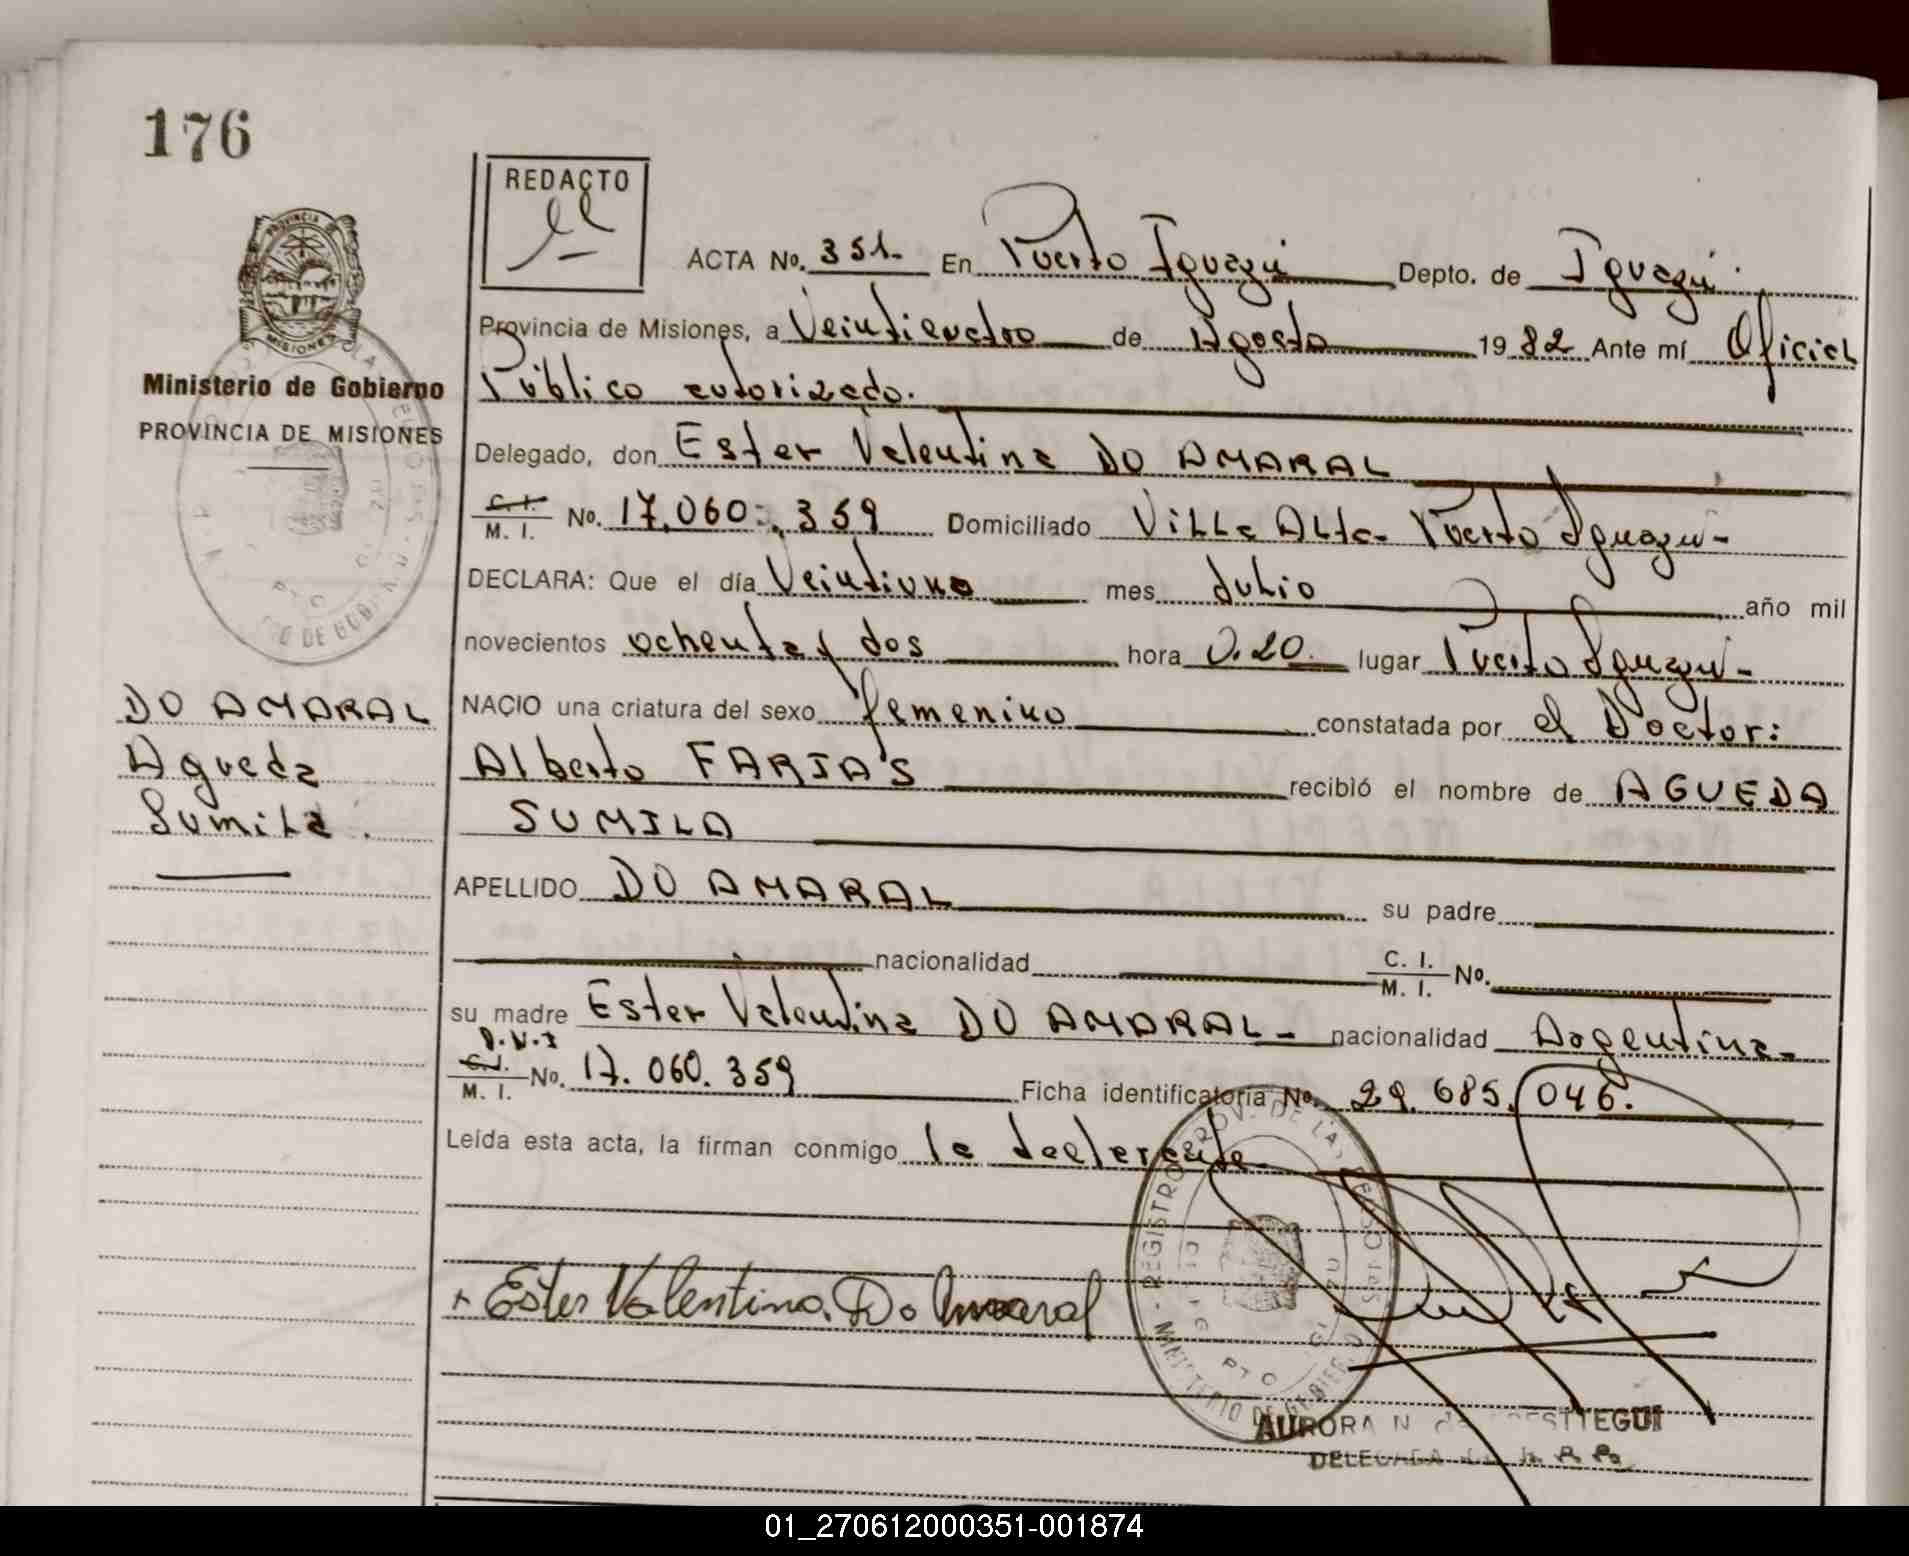 176
REDACTO
PROVINCIA DE
MISIONES
Ministerio de Gobierno
PROVINCIA DE MISIONES
ACTA No. 351.- En Puerto Iguazú Depto. de Iguazú.
Provincia de Misiones, a Veinticuatro de Agosto 1982 Ante mí Oficial
Público autorizado.
Delegado, don Ester Valentina DO AMARAL
C. I. / M. I. No. 17.060.359 Domiciliado Villa Alta- Puerto Iguazú-
DECLARA: Que el día Veintiuno mes Julio año mil
novecientos ochenta y dos hora 0.20. lugar Puerto Iguazú-
NACIO una criatura del sexo femenino constatada por el Doctor:
Alberto FARIAS recibió el nombre de AGUEDA
SUMILA
APELLIDO DO AMARAL su padre
nacionalidad C. I. / M. I. No.
su madre Ester Valentina DO AMARAL- nacionalidad Argentina-
D.N.I
C. I. / M. I. No. 17.060.359 Ficha identificatoria No. 29.685.046.
Leída esta acta, la firman conmigo la declarante
DO AMARAL
Agueda
Sumila.
Ester Valentina Do Amaral
REGISTRO PROV. DE LAS PERSONAS
MINISTERIO DE GOBIERNO
PTO
AURORA N. de
DELEGADA
01_270612000351-001874